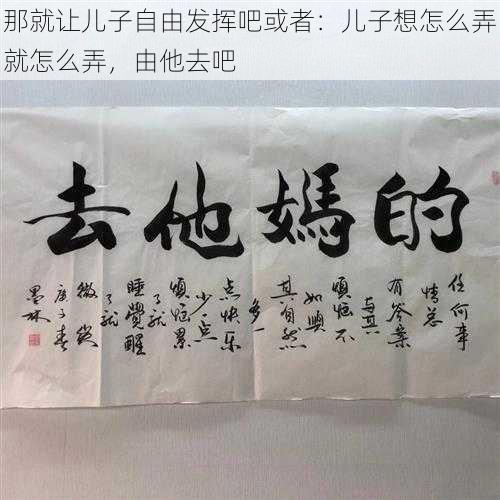 那就让儿子自由发挥吧或者：儿子想怎么弄
就怎么弄，由他去吧
去他媽的
任何事
情总
有答案
与其
煩恼不
如順
其自然
多一
点快乐
少一点
煩恼累
了就
睡覺醒
了就
微笑
庚子春
墨林